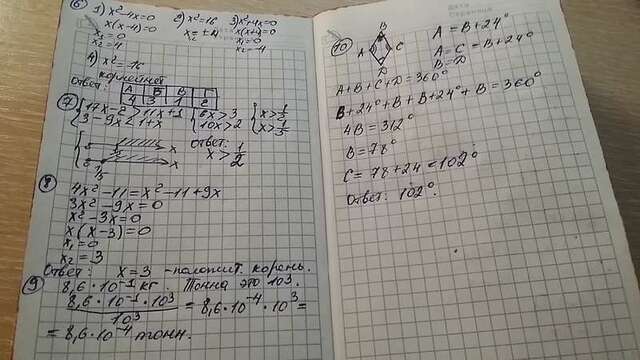 6) 1) x²-4x=0 2) x²=16 3) x²+4x=0
x(x-4)=0 x = ±4 x(x+4)=0
x₁=0 x₁=0
x₂=4 x₂=-4
4) x²=-16
корней нет
Ответ: А Б В Г
4 3 1 2
7) {17x-2>11x+1 {6x>3 {x>1/2
3-9x<1+x 10x>2 x>1/5
Ответ:
x>1/2
8) 4x²-11=x²-11+9x
3x²-9x=0
x²-3x=0
x(x-3)=0
x₁=0
x₂=3
Ответ: x=3 -положит. корень.
9) 8,6·10⁻¹ кг. Тонна это 10³.
8,6·10⁻¹·10³/10³ = 8,6·10⁻⁴·10³=
=8,6·10⁻⁴ тонн.
10) B A=B+24°
A C A=C=B+24°
D B=D
A+B+C+D=360°
B+24°+B+B+24°+B=360°
4B=312°
B=78°
C=78+24=102°
Ответ: 102°.